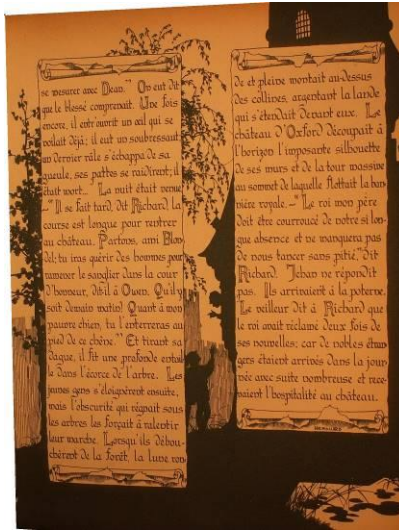 se mesurer avec Dean." On eut dit
que le blessé comprenait. Une fois
encore, il entr'ouvrit un œil qui se
voilait déjà; il eut un soubressaut
un dernier râle s'échappa de sa
gueule, ses pattes se raidirent; il
était mort._ La nuit était venue
_" Il se fait tard, dit Richard, la
course est longue pour rentrer
au château. Partons, ami Blon-
del; tu iras quérir des hommes pour
ramener le sanglier dans la cour
d'honneur, dit-il à Owen. Qu'il y
soit demain matin! Quant à mon
pauvre chien, tu l'enterreras au
pied de ce chêne." Et tirant sa
dague, il fit une profonde entail
le dans l'écorce de l'arbre. Les
jeunes gens s'éloignèrent ensuite,
mais l'obscurité qui régnait sous
les arbres les forçait à ralentir
leur marche. Lorsqu'ils débou-
chèrent de la forêt, la lune ron-
de et pleine montait au-dessus
des collines, argentant la lande
qui s'étendait devant eux. Le
château d'Oxford découpait à
l'horizon l'imposante silhouette
de ses murs et de la tour massive
au sommet de laquelle flottait la ban
nière royale. _" Le roi mon père
doit être courroucé de notre si lon-
gue absence et ne manquera pas
de nous tancer sans pitié," dit
Richard. Jehan ne répondit
pas. Ils arrivaient à la poterne.
Le veilleur dit à Richard que
le roi avait réclamé deux fois de
ses nouvelles; car de nobles étran
gers étaient arrivés dans la jour
née avec suite nombreuse et rece-
vaient l'hospitalité au château.